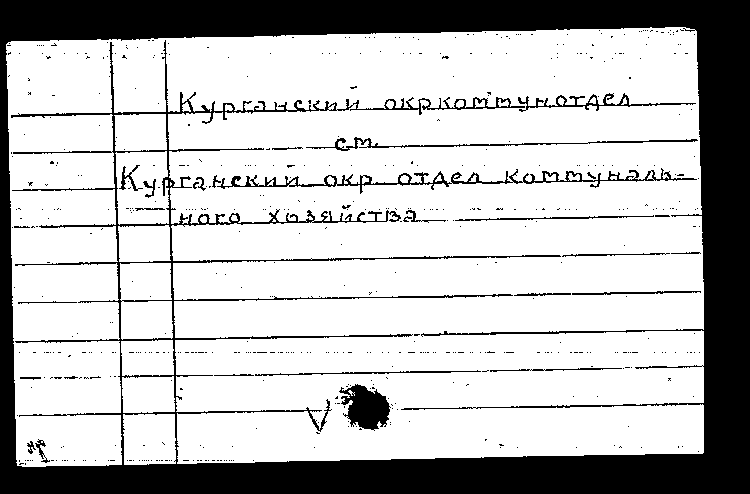 Курганский окркоммунотдел
см.
Курганский окр. отдел коммуналь-
ного хозяйства
V